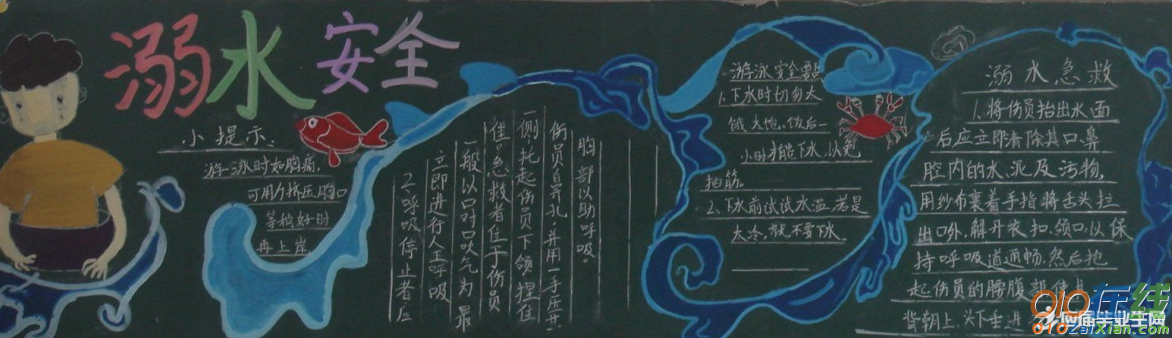 溺水安全
小提示
游泳时如胸痛,
可用力挤压胸口
等稍好时
再上岸
2、呼吸停止者应
立即进行人工呼吸
一般以口对口吹气为最
佳。急救者位于伤员
一侧,托起伤员下颌捏住
伤员鼻孔,并用一手压其
胸部以助呼吸。
游泳安全要点
1.下水时切勿太
饿、太饱,饭后一
小时才能下水,以免
抽筋。
2.下水前试试水温,若是
太冷,就不要下水
溺水急救
1.将伤员抬出水面
后应立即清除其口、鼻
腔内的水、泥及污物,
用纱布裹着手指将舌头拉
出口外,解开衣扣、领口,以保
持呼吸道通畅,然后抱
起伤员的腰腹部使其
背朝上、头下垂进
010在线
应届毕业生网
010zaixian.Com